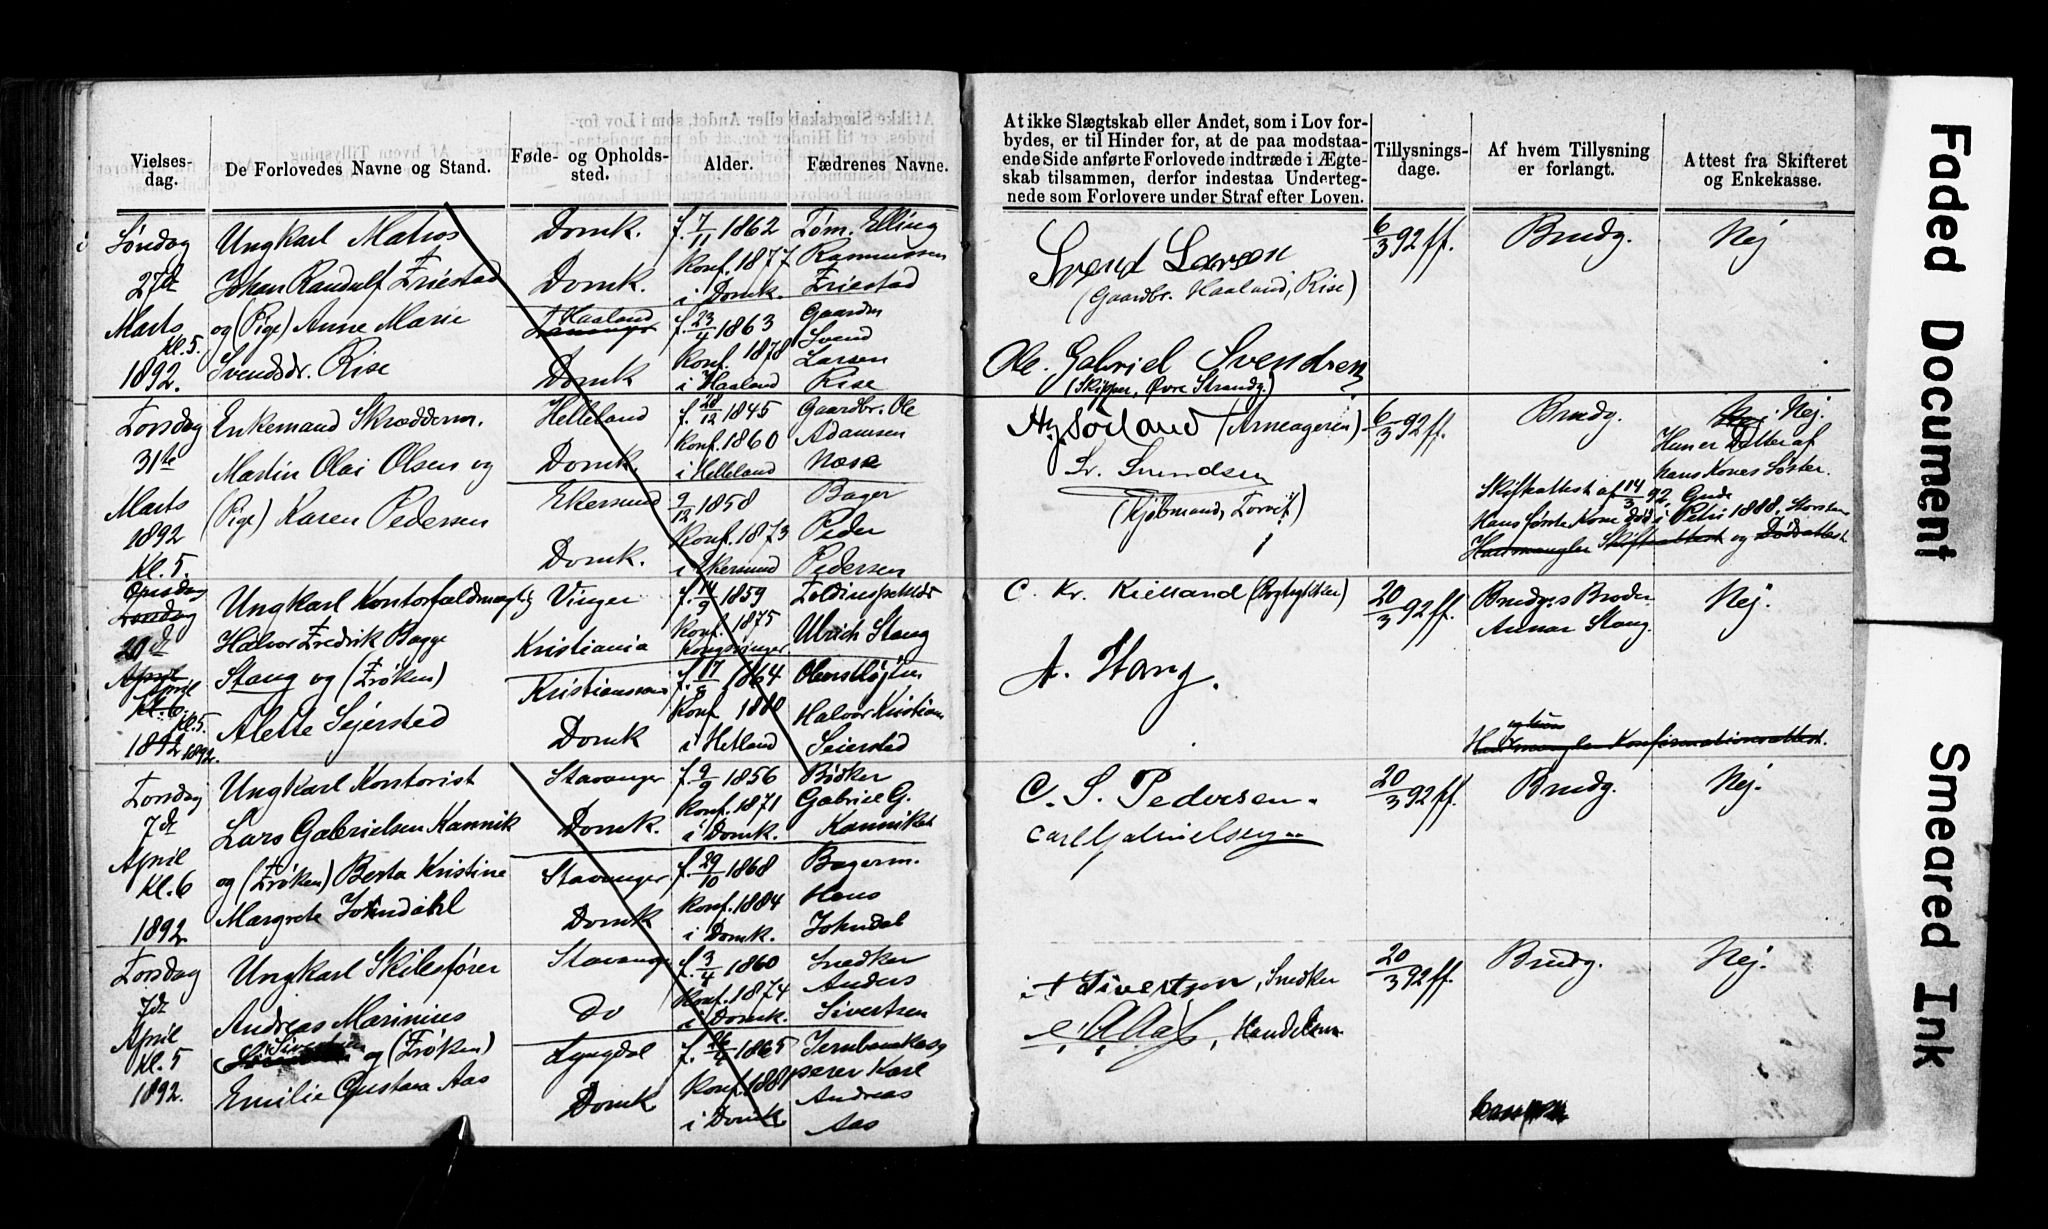 Vielses-
dag.
De Forlovedes Navne og Stand.
Føde- og Opholds-
sted.
Alder.
Fædrenes Navne.
Søndag
27de
Marts
Kl. 5.
1892.
Ungkarl Matros
Johan Randulf Friestad
og (Pige) Anne Marie
Svendsdr. Rise
Domk.
Domk.
Haaland
Domk
f. 7/11 1862
Konf. 1877
i Domk.
f. 23/4 1863
Konf. 1878
i Haaland
Tøm. Elling
Rasmussen
Friestad
Gaardm
Svend
Larsen
Rise
Torsdag
31te
Marts
1892
Kl. 5.
Enkemand Skræddersv.
Martin Olai Olsen og
(Pige) Karen Pedersen
Helleland
Domk.
Ekersund
Domk.
f. 28/12 1845
Konf. 1860
i Helleland
9/12 1858
Konf. 1873
i Ekersund
Gaardbr. Ole
Adamsen
Næse
Bager
Peder
Pedersen
Onsdag
Torsdag
20de
April
April
Kl. 6.
Kl. 5.
1892 1892.
Ungkarl Kontorfuldmægtig
Halvor Fredrik Bagge
Stang og (Frøken)
Alette Sejersted
Vinger
Kristiania
Kristianssand
Domk
f. 14/9 1859
Konf. 1875
Kongsvinger
f. 17/8 1864
Konf 1880
i Hetland
Toldinspektør
Ulrich Stang
Oberstløjtn
Halvor Kristian
Seiersted
Torsdag
7de
April
Kl. 6
1892
Ungkarl Kontorist
Lars Gabrielsen Kannik
og (Frøken) Berta Kristine
Margrete Johndahl
Stavanger
Domk.
Stavanger
Domk
f. 9/9 1856
Konf. 1871
i Domk.
f. 29/10 1868
Konf. 1884
i Domk.
Bødker
Gabriel G.
Kannik
Bagerm.
Hans
Johndal
Torsdag
7de
April
Kl. 5
1892.
Ungkarl Skibsfører
Andreas Marinius
Sivertsen
og (Frøken)
Emilie Gustava Aas
Stavanger
Do
Lyngdal
Domk
f. 3/4 1860
Konf. 1874
i Domk.
f. 26/4 1865
Konf. 1881
i Domk
Snedker
Anders
Sivertsen
Jernbanekasg
perer Karl
Andreas
Aas
At ikke Slægtskab eller Andet, som i Lov for-
bydes, er til Hinder for, at de paa modstaa-
ende Side anførte Forlovede indtræde i Ægte-
skab tilsammen, derfor indestaa Underteg-
nede som Forlovere under Straf efter Loven.
Tillysnings-
dage.
Af hvem Tillysning
er forlangt.
Attest fra Skifteret
og Enkekasse.
Svend Larsen
(Gaardbr. Haaland, Rise)
Ole Gabriel Svendsen
(Skipper, Øvre Strandg.)
6/3 92 ff.
Brudg.
Nej
Sørland (Arneageren)
Sr. Svendsen
(Kjøbmand, Torvet)
6/3 92 ff.
Brudg.
Nej.
Hun er Datter af
hans Kones Søster.
Skifteattest af 14/3 92.
Hans første Kone død i Petri 1888.
Han mangler Skifteattest og Dødsattest
C. Kr. Kielland
A. Stang.
20/3 92 ff.
Brudg.s Broder
Annar Stang.
Nej.
og hun
Han mangler Konfirmationsattest.
C. S. Pedersen
Carl Gabrielsen
20/3 92 ff.
Brudg.
Nej.
A Sivertsen, Snedker
Aas, Handelsm
20/3 92 ff.
Brudg.
Nej.
Faded Document
Smeared Ink